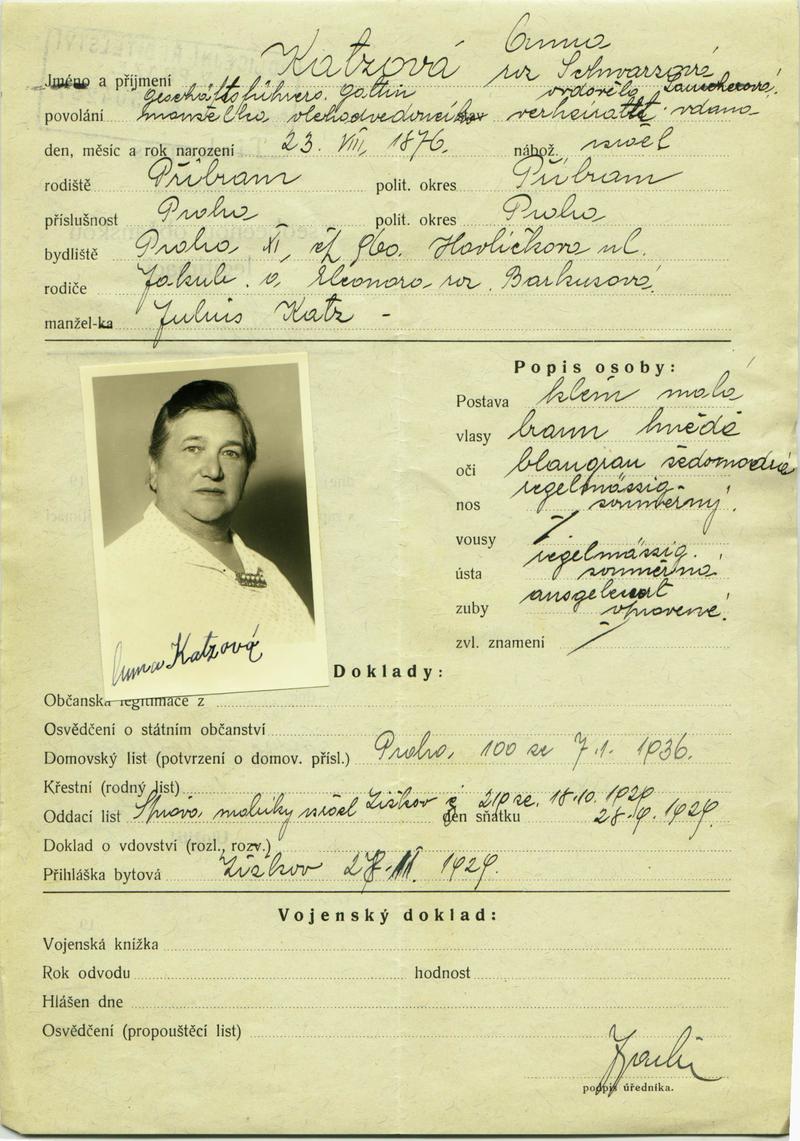 Anna
Katzová roz Schwarzová
Jméno a příjmení ovdověla Laucherová
geschäftsführers gattin
povolání manželka obchodvedoucího verheiratet vdaná
den, měsíc a rok narození 23. VIII, 1876. nábož. israel
rodiště Příbram polit. okres Příbram
příslušnost Praha polit. okres Praha
bydliště Praha XI, čp 960. Havlíčkova ul.
rodiče Jakub a Eleonora roz. Barkusová
manžel-ka Julius Katz -
Popis osoby:
Postava klein malá
vlasy braun hnědé
oči blaugrau šedomodré
regelmässig
nos souměrný
vousy /
regelmässig.
ústa souměrná
ausgebessert
zuby spravené
zvl. znamení /
Anna Katzová
Doklady:
Občanská legitimace z
Osvědčení o státním občanství
Domovský list (potvrzení o domov. přísl.) Praha, 100 ze 7.1. 1936.
Křestní (rodný list)
Oddací list Správa matriky israel Žižkov č 210 ze. 18.10. 1929 den sňatku 28.9. 1929.
Doklad o vdovství (rozl., rozv.)
Přihláška bytová Žižkov 1929.
Vojenský doklad:
Vojenská knížka
Rok odvodu hodnost
Hlášen dne
Osvědčení (propouštěcí list)
podpis úředníka.